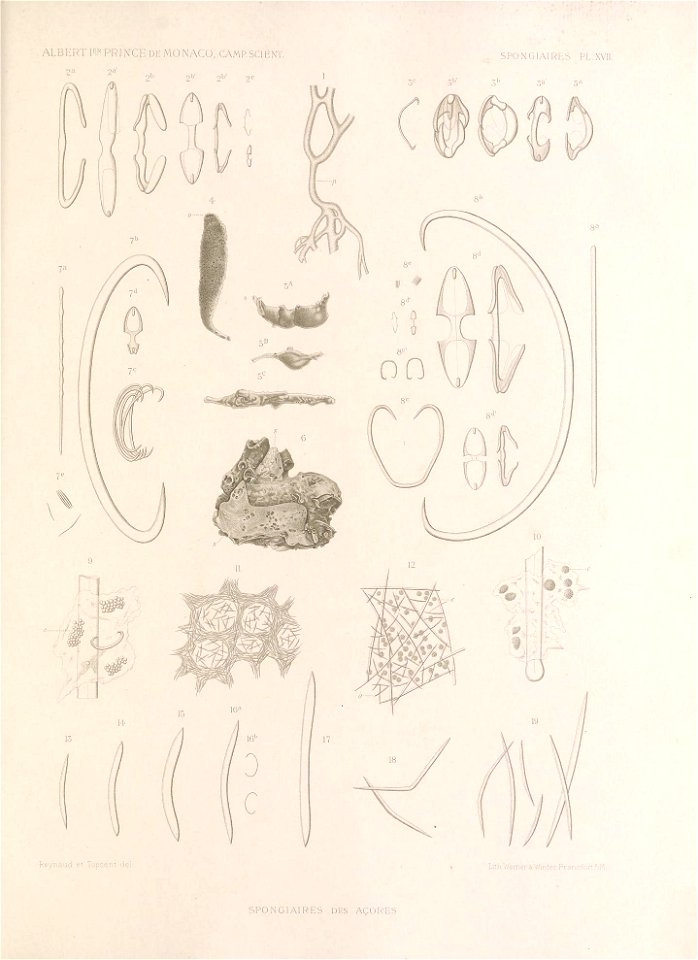 ALBERT Ier PRINCE DE MONACO, CAMP. SCIENT.
SPONGIAIRES PL. XVII.
2a 2a' 2b 2b' 2b' 2c 1 3c 3b' 3b 3a 3a
4 8a 8a
7b
7a 7d 5A 8e 8d
8d'
5B
7c 5C 8c'
8c 8d'
6
7e
9 11 12 10
13 14 15 16a 16b 17 18 19
Reynaud et Topsent del.
Lith. Werner & Winter, Francfort s/M.
SPONGIAIRES DES AÇORES